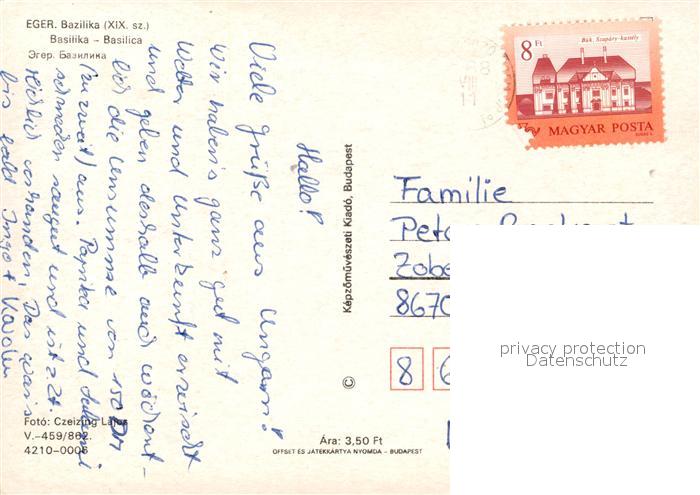 EGER. Bazilika (XIX. sz.)
Basilika – Basilica
Эгер. Базилика
Hallo!
Viele grüße aus Ungarn!
Wir haben's ganz gut mit
Wetter und Unterkunft erwischt
und geben deshalb auch wöchent-
lich die Unsumme von 150 DM
(zu zweit) aus. Paprika und Salami
schmecken saugut und ist z. Zt.
reichlich vorhanden! Das wars
bis bald Ingo + Karolin
Fotó: Czeizing Lajos
V.–459/862.
4210–0006
Képzőművészeti Kiadó, Budapest
©
Ára: 3,50 Ft
OFFSET ÉS JÁTÉKKÁRTYA NYOMDA – BUDAPEST
8 Ft
Bük, Szapáry-kastély
MAGYAR POSTA
Familie
Zobe
8670
8 6
privacy protection
Datenschutz